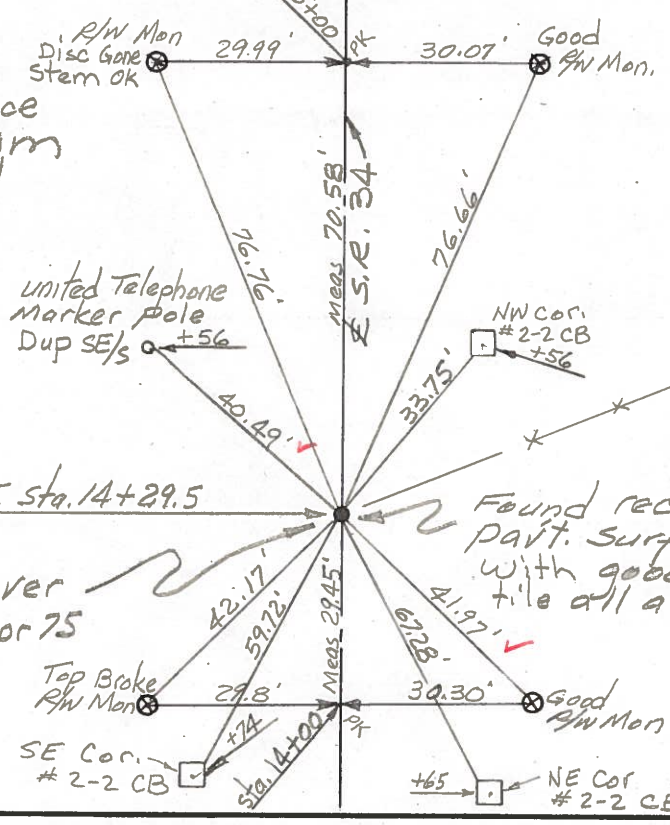 R/W Mon
Disc Gone
Stem OK
29.99'
PK
30.07'
Good
R/W Mon.
76.76'
Meas 70.58'
℄ S.R. 34
76.66'
united Telephone
Marker pole
Dup SE/s
+56
NW Cor.
# 2-2 CB
+56
40.49'
33.75'
Sta. 14+29.5
Found
Pav't.
with
tile all a
or 75
42.17'
59.72'
Meas 29.45'
67.28'
41.97'
Top Broke
R/W Mon
29.8'
30.30'
Good
R/W Mon
PK
+74
Sta. 14+00
SE Cor.
# 2-2 CB
+65
NE Cor
# 2-2 CB